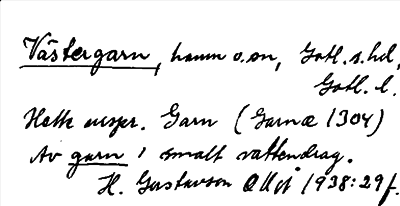 Västergarn, hamn o. sn, Gotl. s. hd,
Gotl. l.
Hette urspr. Garn (Garnæ 1304)
Av garn 'smalt vattendrag.
H. Gustavson 1938:29 f.